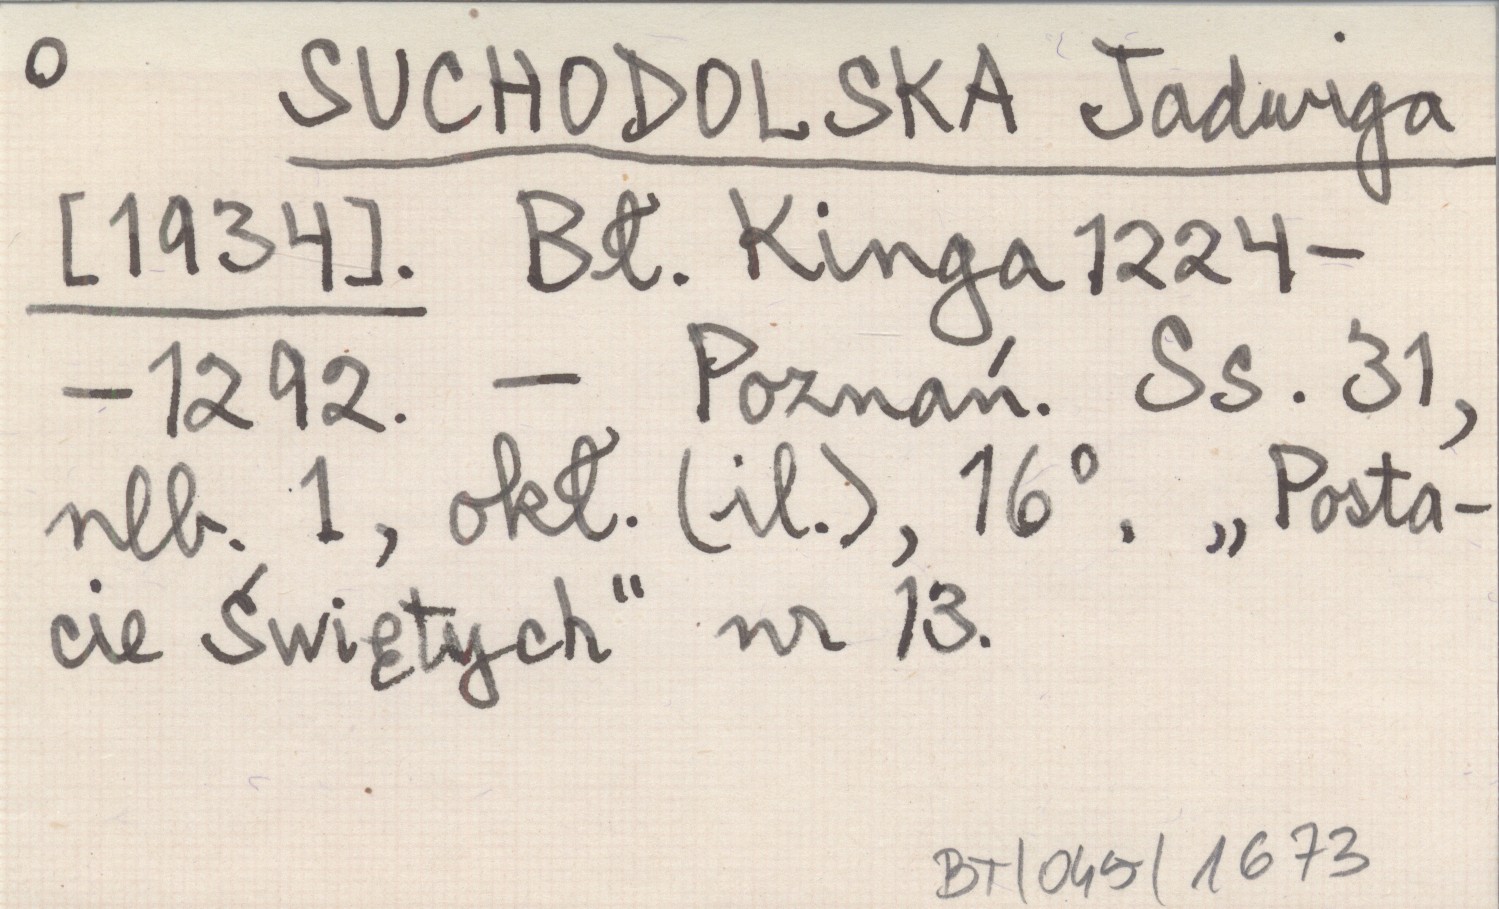 o SUCHODOLSKA Jadwiga
[1934]. Bł. Kinga 1224-
-1292. — Poznań. Ss. 31,
nlb. 1, okł. (il.), 16°. „Posta-
cie Świętych" nr 13.
BT/045/1673